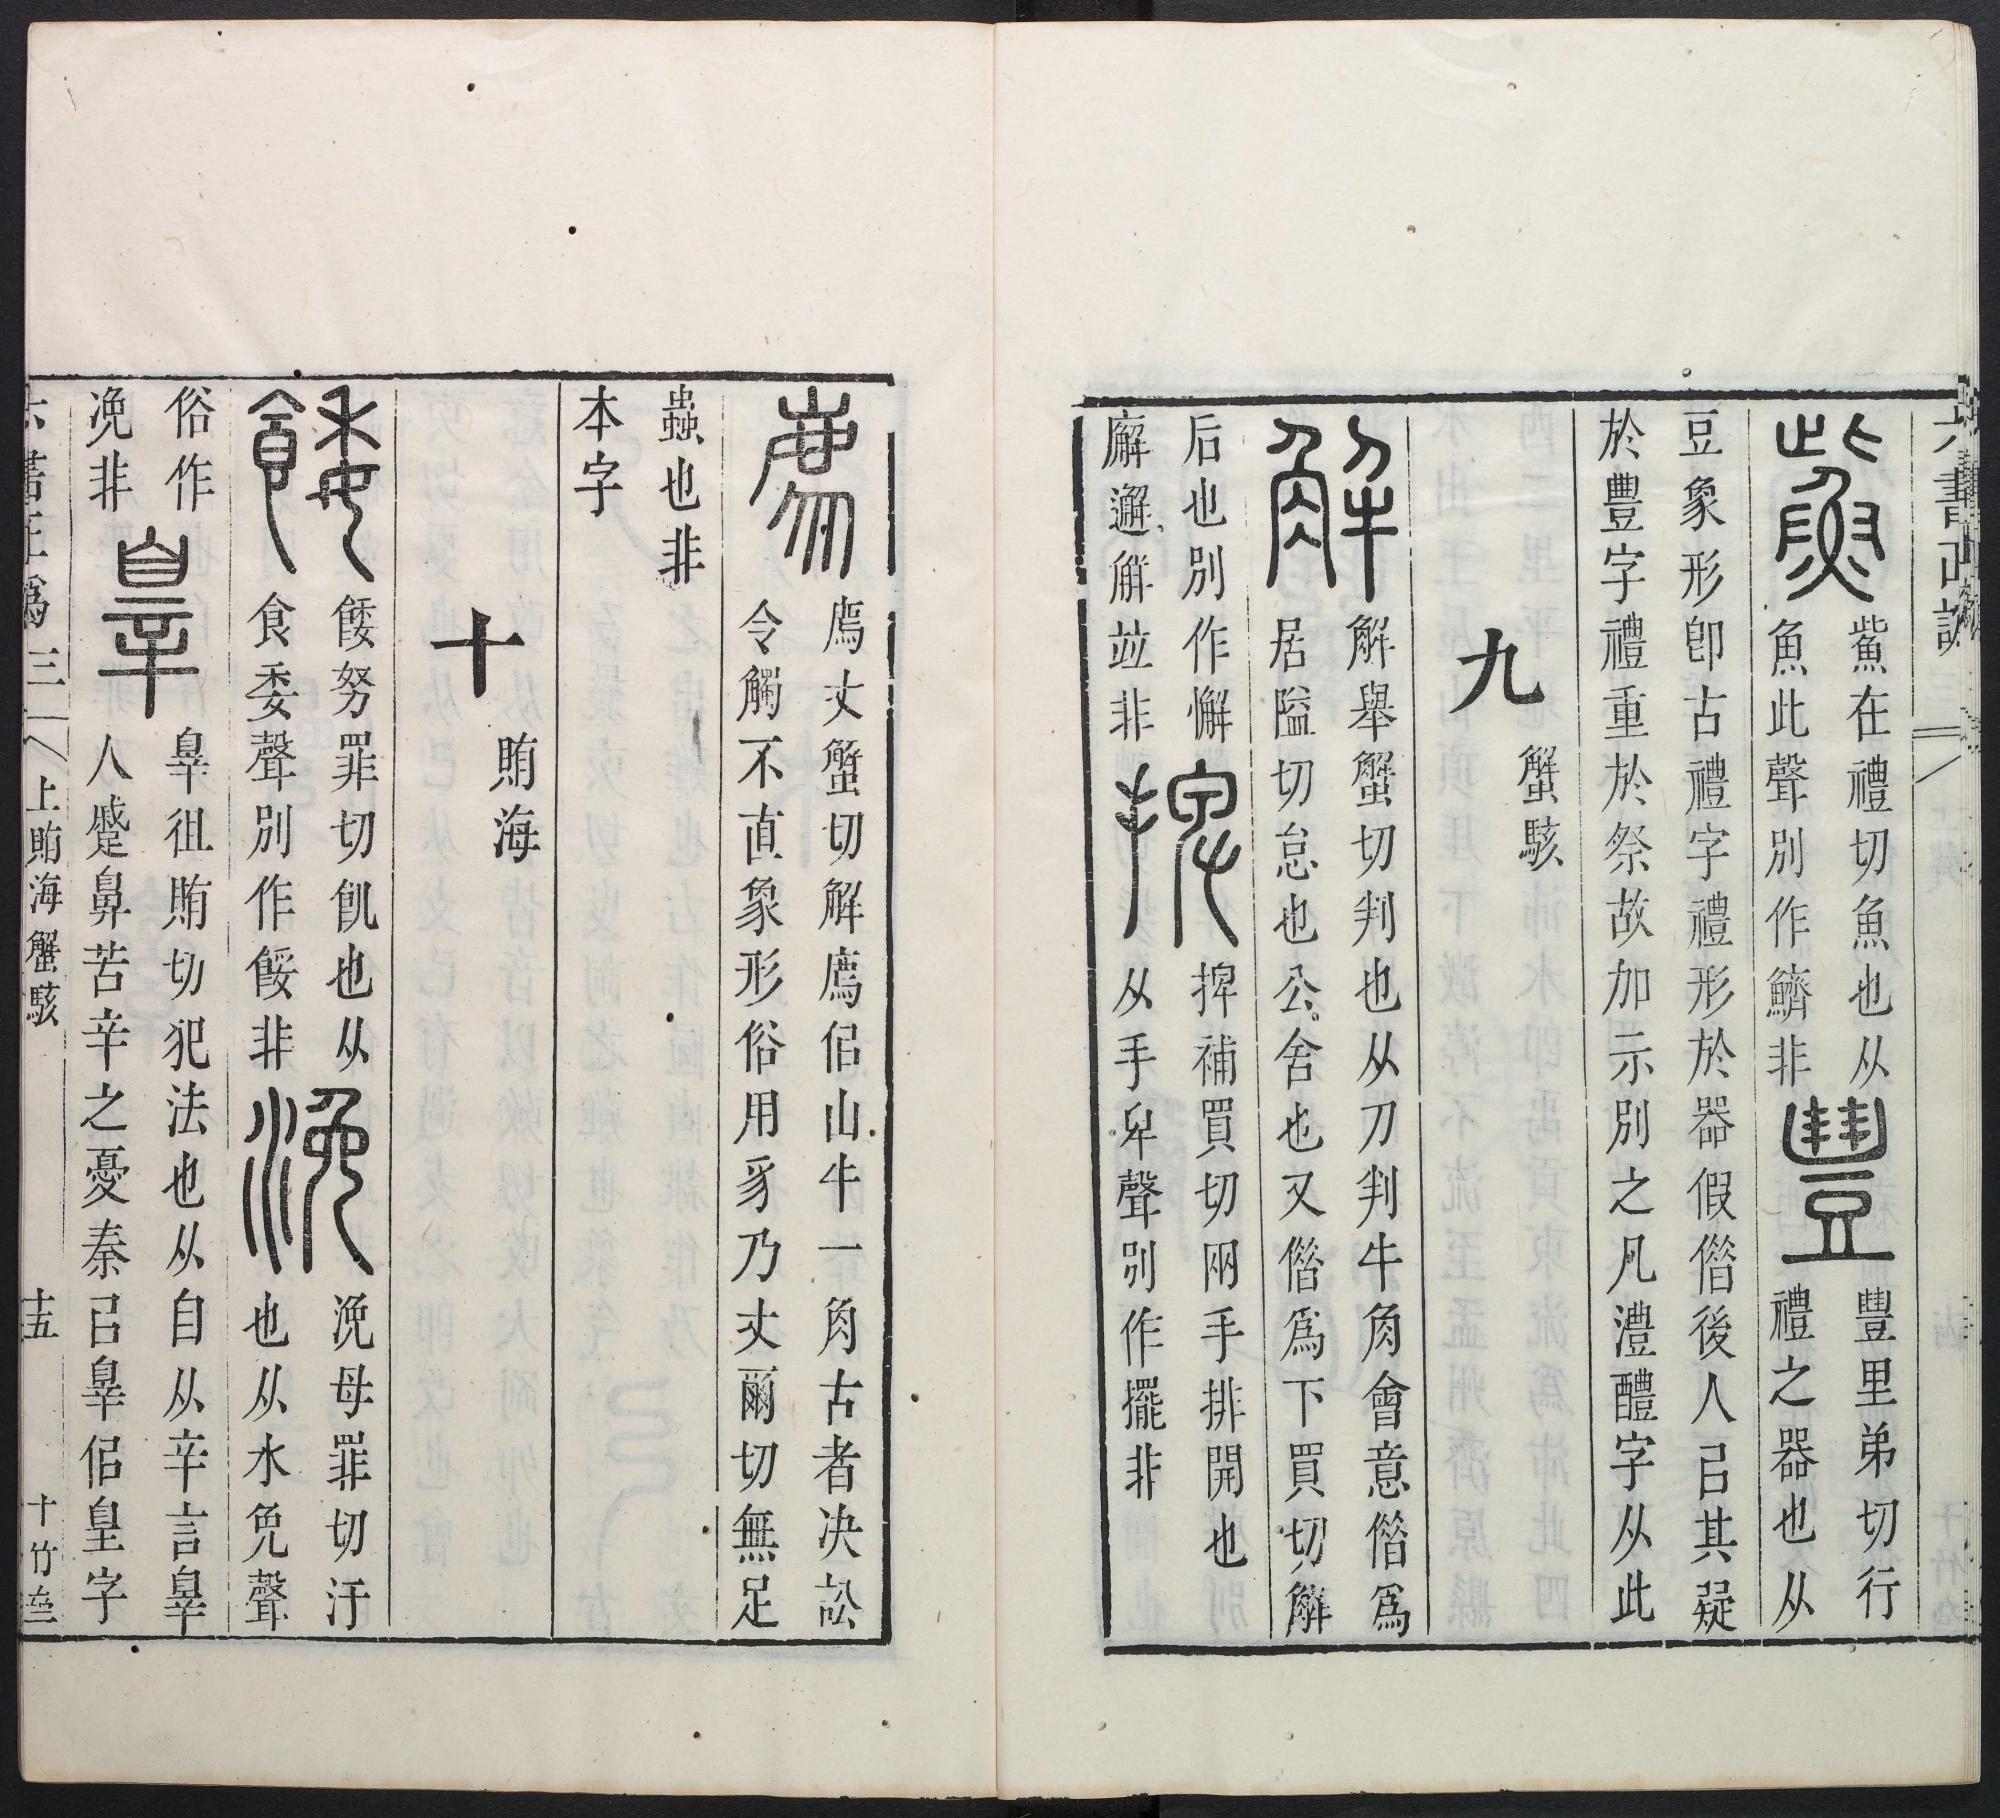 六書正譌
鮆 鮆在禮切魚也从
魚此聲別作鱭非
豊 豊里弟切行
禮之器也从
豆象形卽古禮字禮形於器假偺後人㠯其疑
於豐字禮重於祭故加示別之凡澧醴字从此
九 蟹駭
解 解舉蟹切判也从刀判牛角會意偺爲
居隘切怠也公舍也又偺爲下買切解
后也別作懈
廨邂觧竝非
捭 捭補買切兩手排開也
从手𤰞聲別作擺非
廌 廌丈蟹切解廌佀山牛一角古者决訟
令觸不直象形俗用豸乃丈爾切無足
蟲也非
本字
十 賄海
餧 餧努罪切飢也从
食委聲別作餒非
浼 浼母罪切汙
也从水免聲
俗作
凂非
辠 辠徂賄切犯法也从自从辛言辠
人蹙鼻苦辛之憂秦㠯辠佀皇字
六書正譌 三 上賄海蟹駭 十五 十竹齋